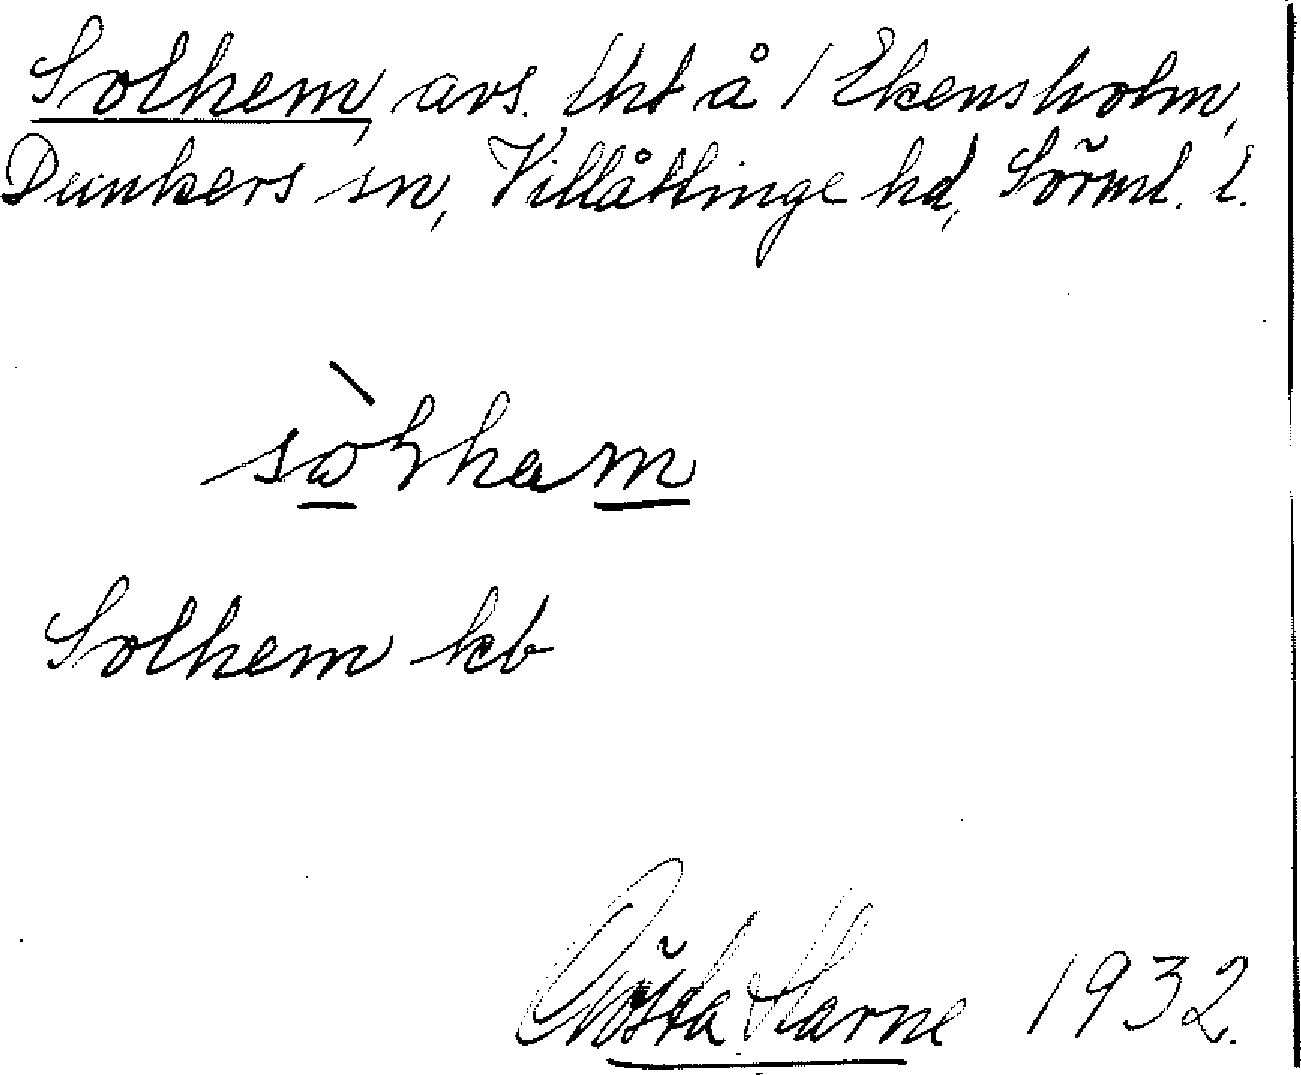 Solhem, avs. lht å 1 Ekensholm,
Dunkers sn, Villåttinge hd, Sörml. l.
Solhem kb
Gösta Harne 1932.